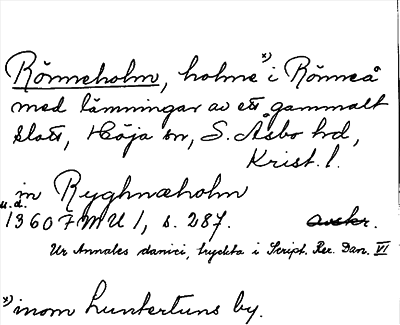 Rönneholm, holme x) i Rönneå
med lämningar av ett gammalt
slott, Höja sn, S. Åsbo hd,
Krist. l.
in Ryghnæholm
u.d.
1360 FMU 1, s. 287. avskr.
Ur Annales danici, tryckta i Script. Rer. Dan. VI
x) inom Luntertuns by.